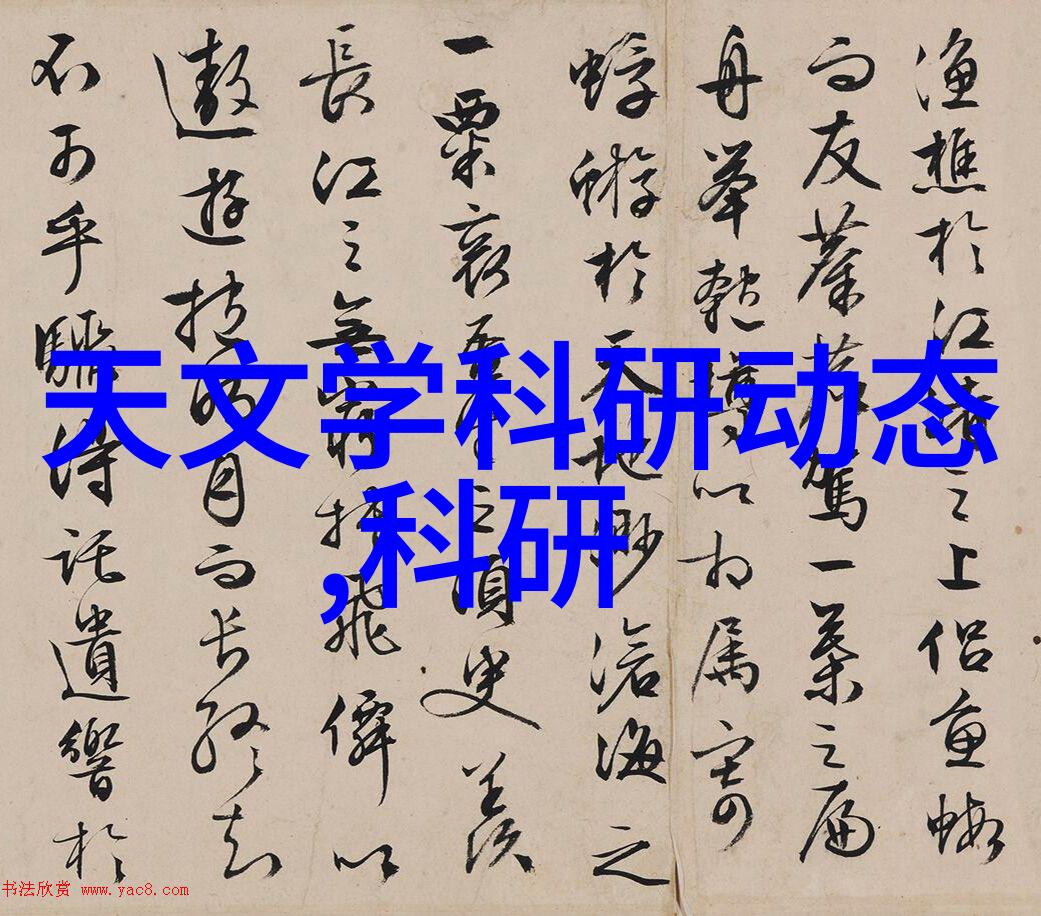 渔樵於江渚之上侣鱼蝦
而友麋鹿駕一葉之扁
舟举匏樽以相属寄
蜉蝣於天地渺滄海之
一粟哀吾生之須臾羨
長江之無窮挾飛僊以
遨遊抱明月而长终知
不可乎驟得託遺響於
天文学科研动态
,科研
书法欣赏 www.yac8.com